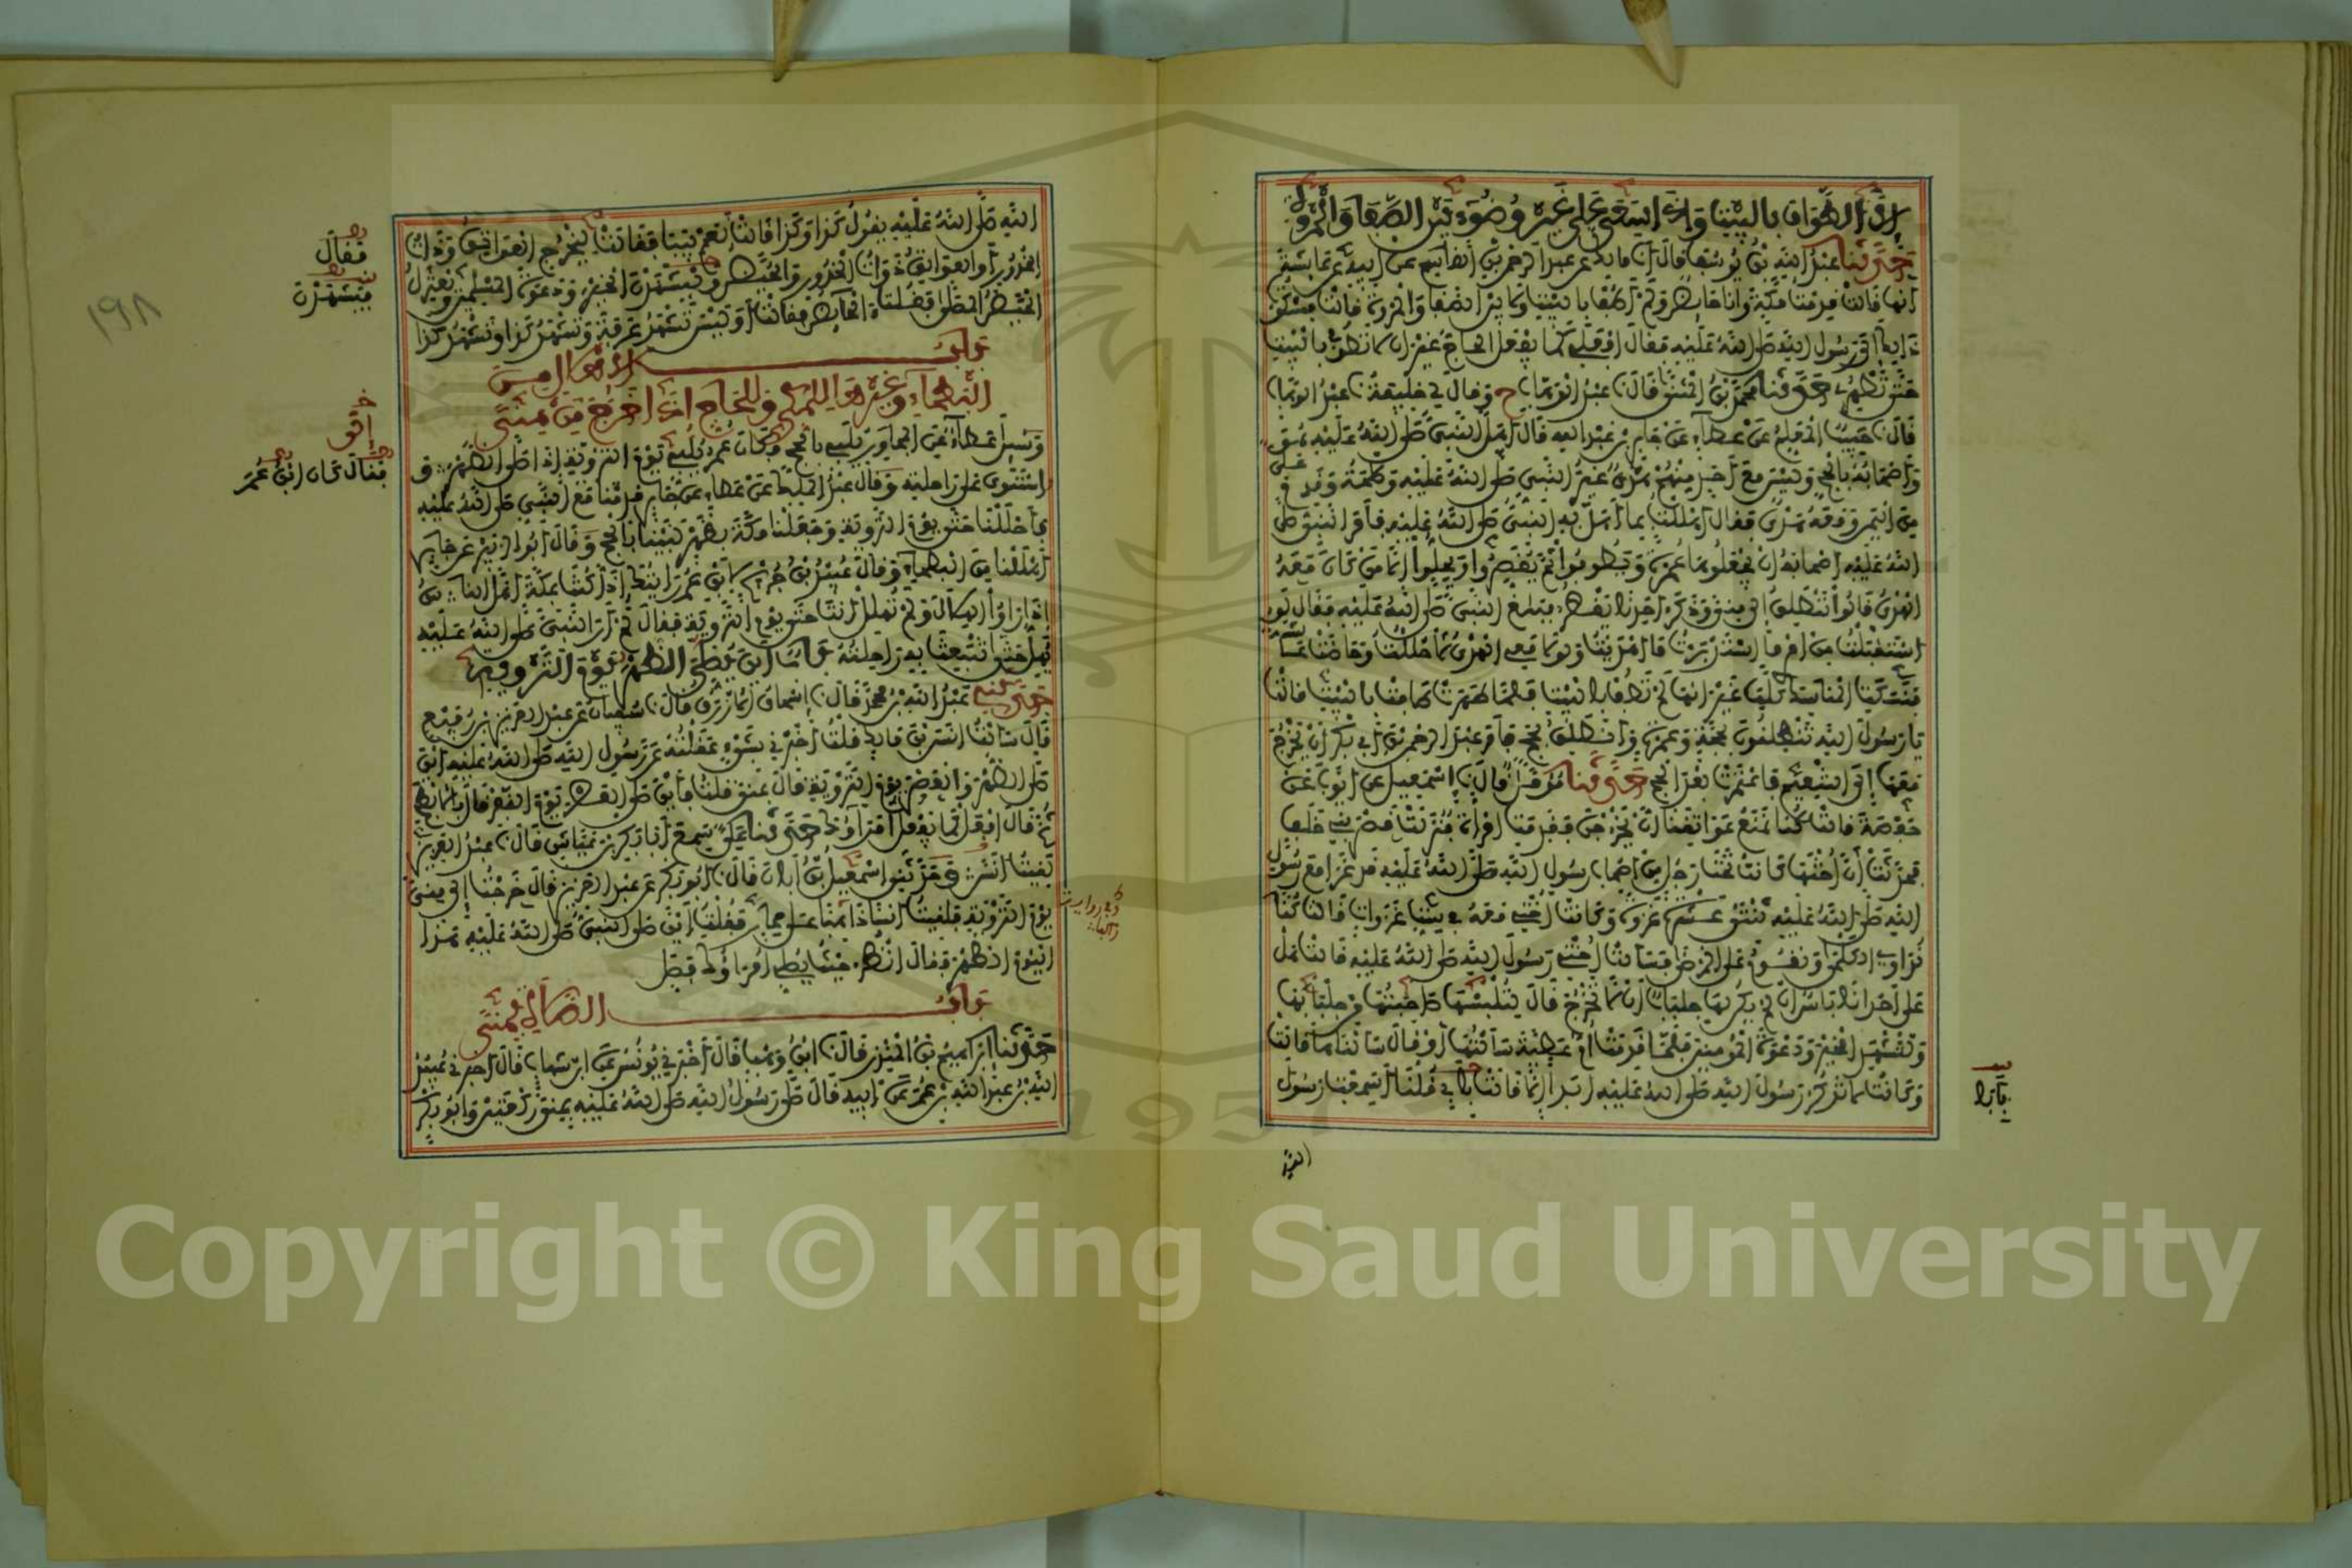 إلا الطواف بالبيت وإذا سعى على غير وضوء بين الصفا والمروة
حدثنا عبد الله بن يوسف قال أنا مالك عن عبد الرحمن بن القاسم عن أبيه عن عائشة
أنها قالت قدمت مكة وأنا حائض ولم أطف بالبيت ولا بين الصفا والمروة قالت فشكوت
ذلك إلى رسول الله صلى الله عليه فقال افعلي كما يفعل الحاج غير أن لا تطوفي بالبيت
حتى تطهري حدثنا محمد بن المثنى قال نا عبد الوهاب ح وقال لي خليفة نا عبد الوهاب
قال نا حبيب المعلم عن عطاء عن جابر بن عبد الله قال أهل النبي صلى الله عليه هو
وأصحابه بالحج وليس مع أحد منهم هدي غير النبي صلى الله عليه وطلحة وقدم علي
من اليمن ومعه هدي فقال أهللت بما أهل به النبي صلى الله عليه فأمر النبي صلى
الله عليه أصحابه أن يجعلوها عمرة ويطوفوا ثم يقصروا ويحلوا إلا من كان معه
الهدي قالوا ننطلق إلى منى وذكر أحدنا يقطر فبلغ النبي صلى الله عليه فقال لو
استقبلت من أمري ما استدبرت ما أهديت ولولا أن معي الهدي لأحللت وحاضت عائشة
فنسكت المناسك كلها غير أنها لم تطف بالبيت فلما طهرت طافت بالبيت قالت
يا رسول الله تنطلقون بحجة وعمرة وأنطلق بحج فأمر عبد الرحمن بن أبي بكر أن يخرج
معها إلى التنعيم فاعتمرت بعد الحج حدثنا مؤمل قال نا إسمعيل عن أيوب عن
حفصة قالت كنا نمنع عواتقنا أن يخرجن فقدمت امرأة فنزلت قصر بني خلف
فحدثت أن أختها كانت تحت رجل من أصحاب رسول الله صلى الله عليه قد غزا مع رسول
الله صلى الله عليه ثنتي عشرة غزوة وكانت أختي معه في ست غزوات قالت كنا
نداوي الكلمى ونقوم على المرضى فسألت أختي رسول الله صلى الله عليه قالت هل
على إحدانا بأس إن لم يكن لها جلباب أن لا تخرج قال لتلبسها صاحبتها من جلبابها
ولتشهد الخير ودعوة المؤمنين فلما قدمت أم عطية سألنها أو قال سألناها قالت
وكانت لا تذكر رسول الله صلى الله عليه أبدا إلا قالت بأبي قلنا أسمعت رسول
بأبا
الله صلى الله عليه يقول كذا وكذا قالت نعم بيبا فقالت ليخرج العواتق وذوات
الخدور أو العواتق ذوات الخدور والحيض فيشهدن الخير ودعوة المسلمين ويعتزل
الحيض المصلى فقلت الحائض فقالت أوليس تشهد عرفة وتشهد كذا وتشهد كذا
باب الإهلال من
البطحاء وغيرها للمكي وللحاج إذا خرج من منى
وسئل عطاء عن المجاور يلبي بالحج فكان ابن عمر يلبي يوم التروية إذا صلى الظهر و
استوى على راحلته وقال عبد الملك عن عطاء عن جابر قدمنا مع النبي صلى الله عليه
فأحللنا حتى يوم التروية وجعلنا مكة بظهر لبينا بالحج وقال أبو الزبير عن جابر
أهللنا من البطحاء وقال عبيد بن جريج لابن عمر رأيتك إذا كنت بمكة أهل الناس
إذا رأوا الهلال ولم تهل أنت حتى يوم التروية فقال لم أر النبي صلى الله عليه
يهل حتى تنبعث به راحلته باب أين يصلي الظهر يوم التروية
حدثني عبد الله بن محمد قال نا إسحاق الأزرق قال نا سفيان عن عبد العزيز بن رفيع
قال سألت أنس بن مالك قلت أخبرني بشيء عقلته عن رسول الله صلى الله عليه أين
صلى الظهر والعصر يوم التروية قال بمنى قلت فأين صلى العصر يوم النفر قال بالأبطح
ثم قال افعل كما يفعل أمراؤك حدثنا علي سمع أبا بكر بن عياش قال نا عبد العزيز
لقيت أنسا وحدثني إسمعيل بن أبان قال نا أبو بكر عن عبد العزيز قال خرجت إلى منى
يوم التروية فلقيت أنسا ذاهبا على حمار فقلت أين صلى النبي صلى الله عليه هذا
اليوم الظهر فقال انظر حيث يصلي أمراؤك فصل
باب الصلاة بمنى
حدثنا إبراهيم بن المنذر قال نا ابن وهب قال أخبرني يونس عن ابن شهاب قال أخبرني عبيد
الله بن عبد الله بن عمر عن أبيه قال صلى رسول الله صلى الله عليه بمنى ركعتين وأبو بكر
فقال
فيشهدن
فقال كان ابن عمر
١٩٨
Copyright © King Saud University
1957